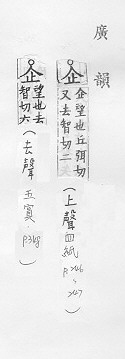 廣韻
企 企望也丘弭切
又去智切二
(上聲四紙 P.246~247)
企 望也去
智切六
(去聲 五寘 P348)